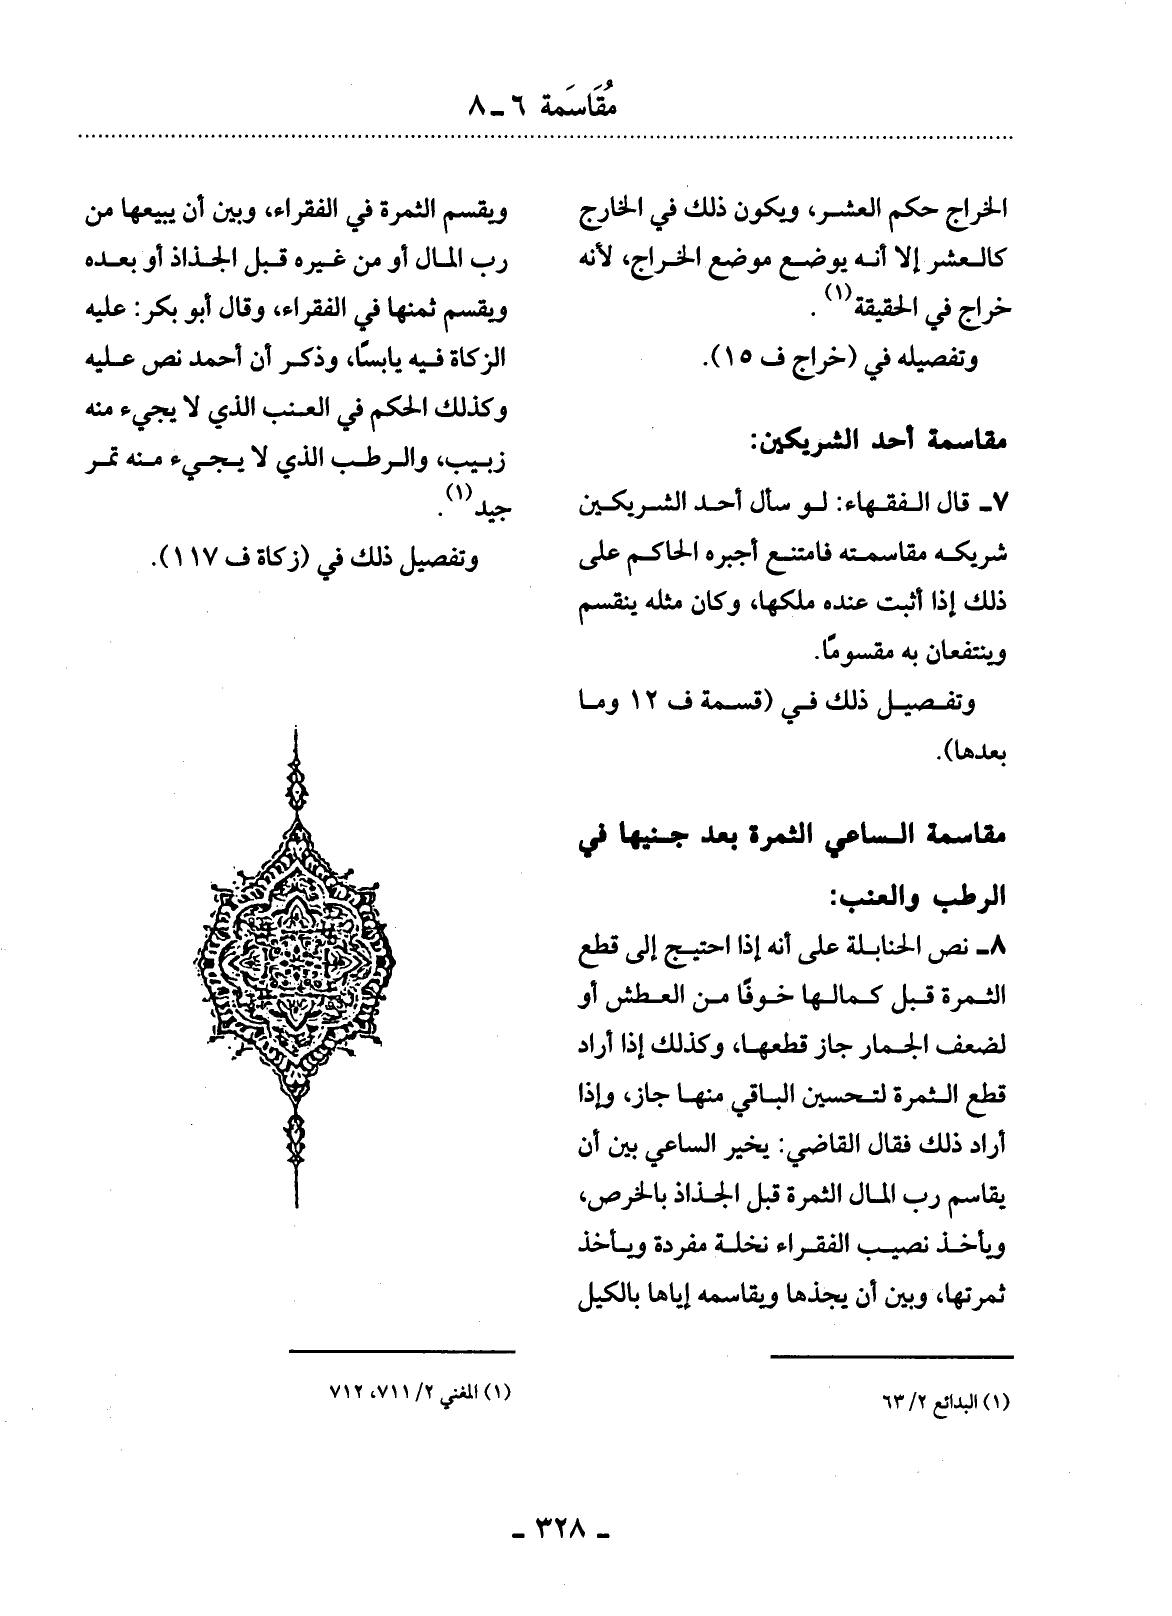 مُقَاسَمة ٦ ـ ٨
الخراج حكم العشر، ويكون ذلك في الخارج
كالعشر إلا أنه يوضع موضع الخراج، لأنه
خراج في الحقيقة(١).
وتفصيله في (خراج ف ١٥).
مقاسمة أحد الشريكين:
٧ـ قال الفقهاء: لو سأل أحد الشريكين
شريكه مقاسمته فامتنع أجبره الحاكم على
ذلك إذا أثبت عنده ملكها، وكان مثله ينقسم
وينتفعان به مقسومًا.
وتفصيل ذلك في (قسمة ف ١٢ وما
بعدها).
مقاسمة الساعي الثمرة بعد جنيها في
الرطب والعنب:
٨ـ نص الحنابلة على أنه إذا احتيج إلى قطع
الثمرة قبل كمالها خوفًا من العطش أو
لضعف الجمار جاز قطعها، وكذلك إذا أراد
قطع الثمرة لتحسين الباقي منها جاز، وإذا
أراد ذلك فقال القاضي: يخير الساعي بين أن
يقاسم رب المال الثمرة قبل الجذاذ بالخرص،
ويأخذ نصيب الفقراء نخلة مفردة ويأخذ
ثمرتها، وبين أن يجذها ويقاسمه إياها بالكيل
(١) البدائع ٢/ ٦٣
ويقسم الثمرة في الفقراء، وبين أن يبيعها من
رب المال أو من غيره قبل الجذاذ أو بعده
ويقسم ثمنها في الفقراء، وقال أبو بكر: عليه
الزكاة فيه يابسًا، وذكر أن أحمد نص عليه
وكذلك الحكم في العنب الذي لا يجيء منه
زبيب، والرطب الذي لا يجيء منه تمر
جيد(١).
وتفصيل ذلك في (زكاة ف ١١٧).
(١) المغني ٢/ ٧١١، ٧١٢
ـ ٣٢٨ ـ